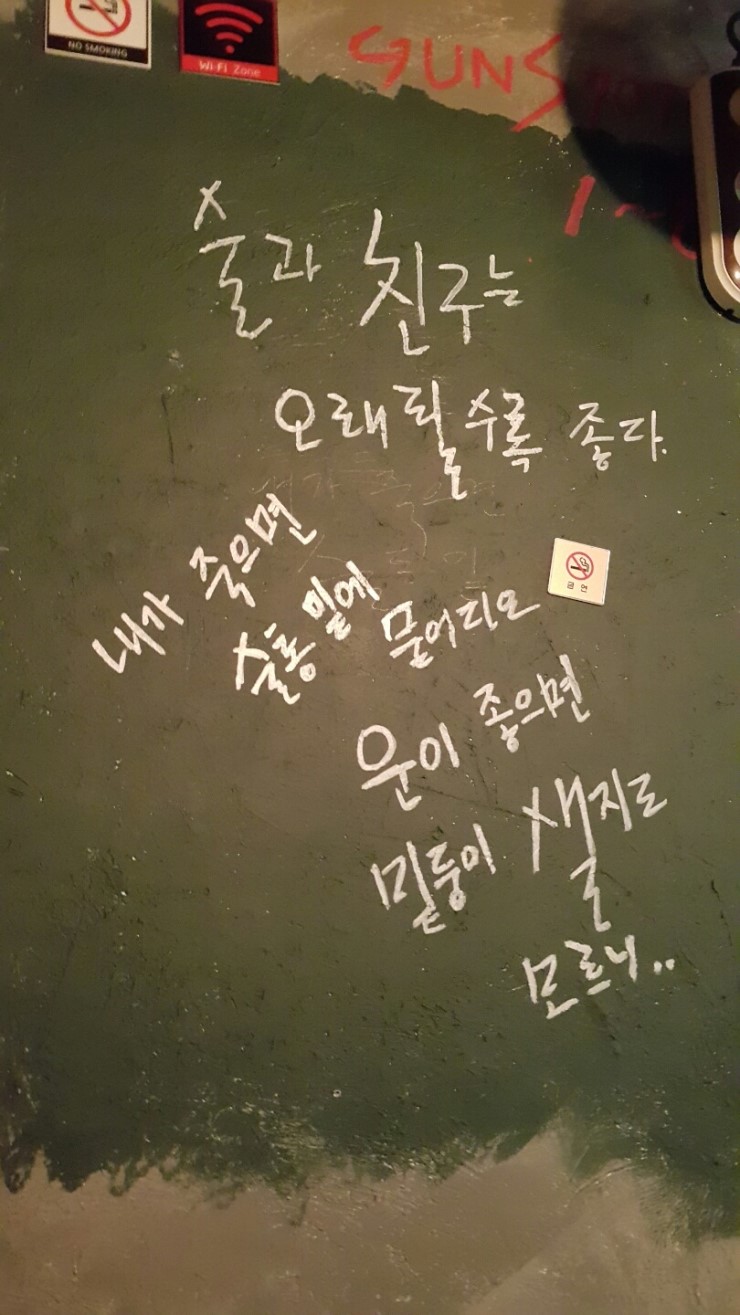 NO SMOKING
Wi-Fi Zone
SUNS
술과 친구는
오래될수록 좋다.
내가 죽으면
술통 밑에 묻어디오
금연
운이 좋으면
밑둥이 샐지로
모르니..